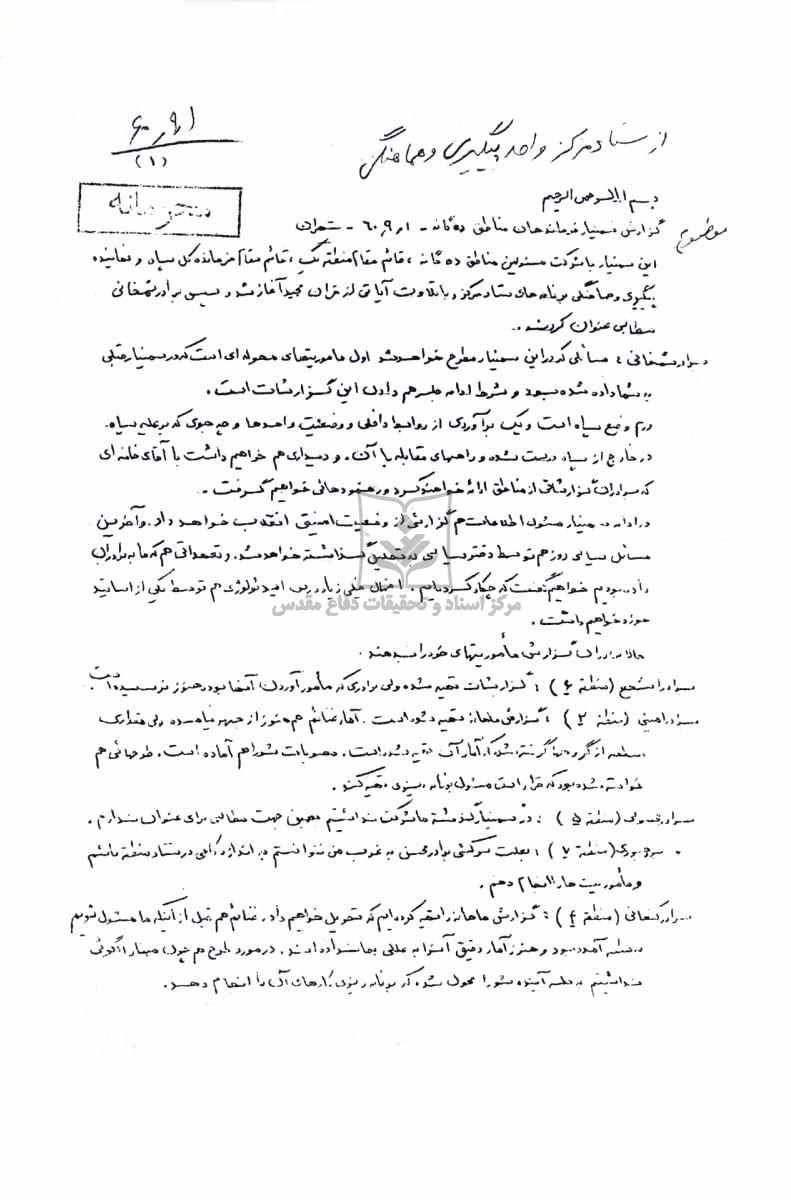 ۶۰٫۹٫۱
(۱)
از ستاد مرکز واحد پیگیری و هماهنگی
محرمانه
بسم الله الرحمن الرحیم
موضوع گزارش سمینار فرماندهان مناطق ده گانه - ۶۰٫۹٫۱ - تهران
این سمینار با شرکت مسئولین مناطق ده گانه ، قائم مقام منطقه یک ، قائم مقام فرمانده کل سپاه و نماینده
پیگیری و هماهنگی برنامه های ستاد مرکز و با تلاوت آیاتی از قرآن مجید آغاز شد و سپس برادر شمخانی
مطالبی عنوان کردند .
برادر شمخانی : مسائلی که در این سمینار مطرح خواهد شد اول ماموریتهای محوله ای است که در سمینار قبلی
به شما داده شده بود و شرط ادامه جلسه هم دادن این گزارشات است .
دوم وضع سپاه است و یک برآوردی از روابط داخلی و وضعیت واحدها و جوی که بر علیه سپاه
در خارج از سپاه درست شده و راههای مقابله با آن . و دیداری هم خواهیم داشت با آقای خامنه ای
که برادران گزارشاتی از مناطق ارائه خواهند کرد و رهنمودهائی خواهیم گرفت .
در ادامه سمینار مسئول اطلاعات هم گزارشی از وضعیت امنیتی انقلاب خواهد داد . و آخرین
مسائل سیاسی روز هم توسط دفتر سیاسی به تحلیل گذاشته خواهد شد . و تعهداتی هم که ما به برادران
داده بودیم خواهیم گفت که چکار کرده ایم . احتمال خیلی زیاد درس ایدئولوژی هم توسط یکی از اساتید
حوزه خواهیم داشت .
مرکز اسناد و تحقیقات دفاع مقدس
حالا برادران گزارش مأموریتهای خود را بدهند .
برادر (منطقه ۶) : گزارشات تهیه شده ولی برادری که مأمور آوردن آنها بود هنوز نرسیده است .
برادر (منطقه ۲) : گزارش ماهانه تهیه شده است . آمار غنائم هم هنوز از جبهه نیامده ولی مقداری
اسلحه از گروهها گرفته شده که آمار آن تهیه شده است . مصوبات شورا هم آماده است . طرحهائی هم
خواسته شده بود که قرار است مسئول برنامه ریزی تهیه کند .
برادر (منطقه ۵) : در سمینار گذشته ما شرکت نداشتیم بهمین جهت مطالبی برای عنوان نداریم .
برادر (منطقه ۷) : بعلت سرکشی برادر محسن به غرب من نتوانستم به اندازه کافی در ستاد منطقه باشم
و مأموریت ها را انجام دهم .
برادر کنعانی (منطقه ۴) : گزارش ماهانه را تهیه کرده ایم که تحویل خواهیم داد . غنائم هم قبل از اینکه ما مسئول شویم
آمده بود و هنوز آمار دقیق آنرا به عللی بما نداده اند . در مورد طرح هم چون معیار و الگوئی
نداشتیم به جلسه آینده شورا محول شده که برنامه ریزی کارهای آن را انجام دهد .